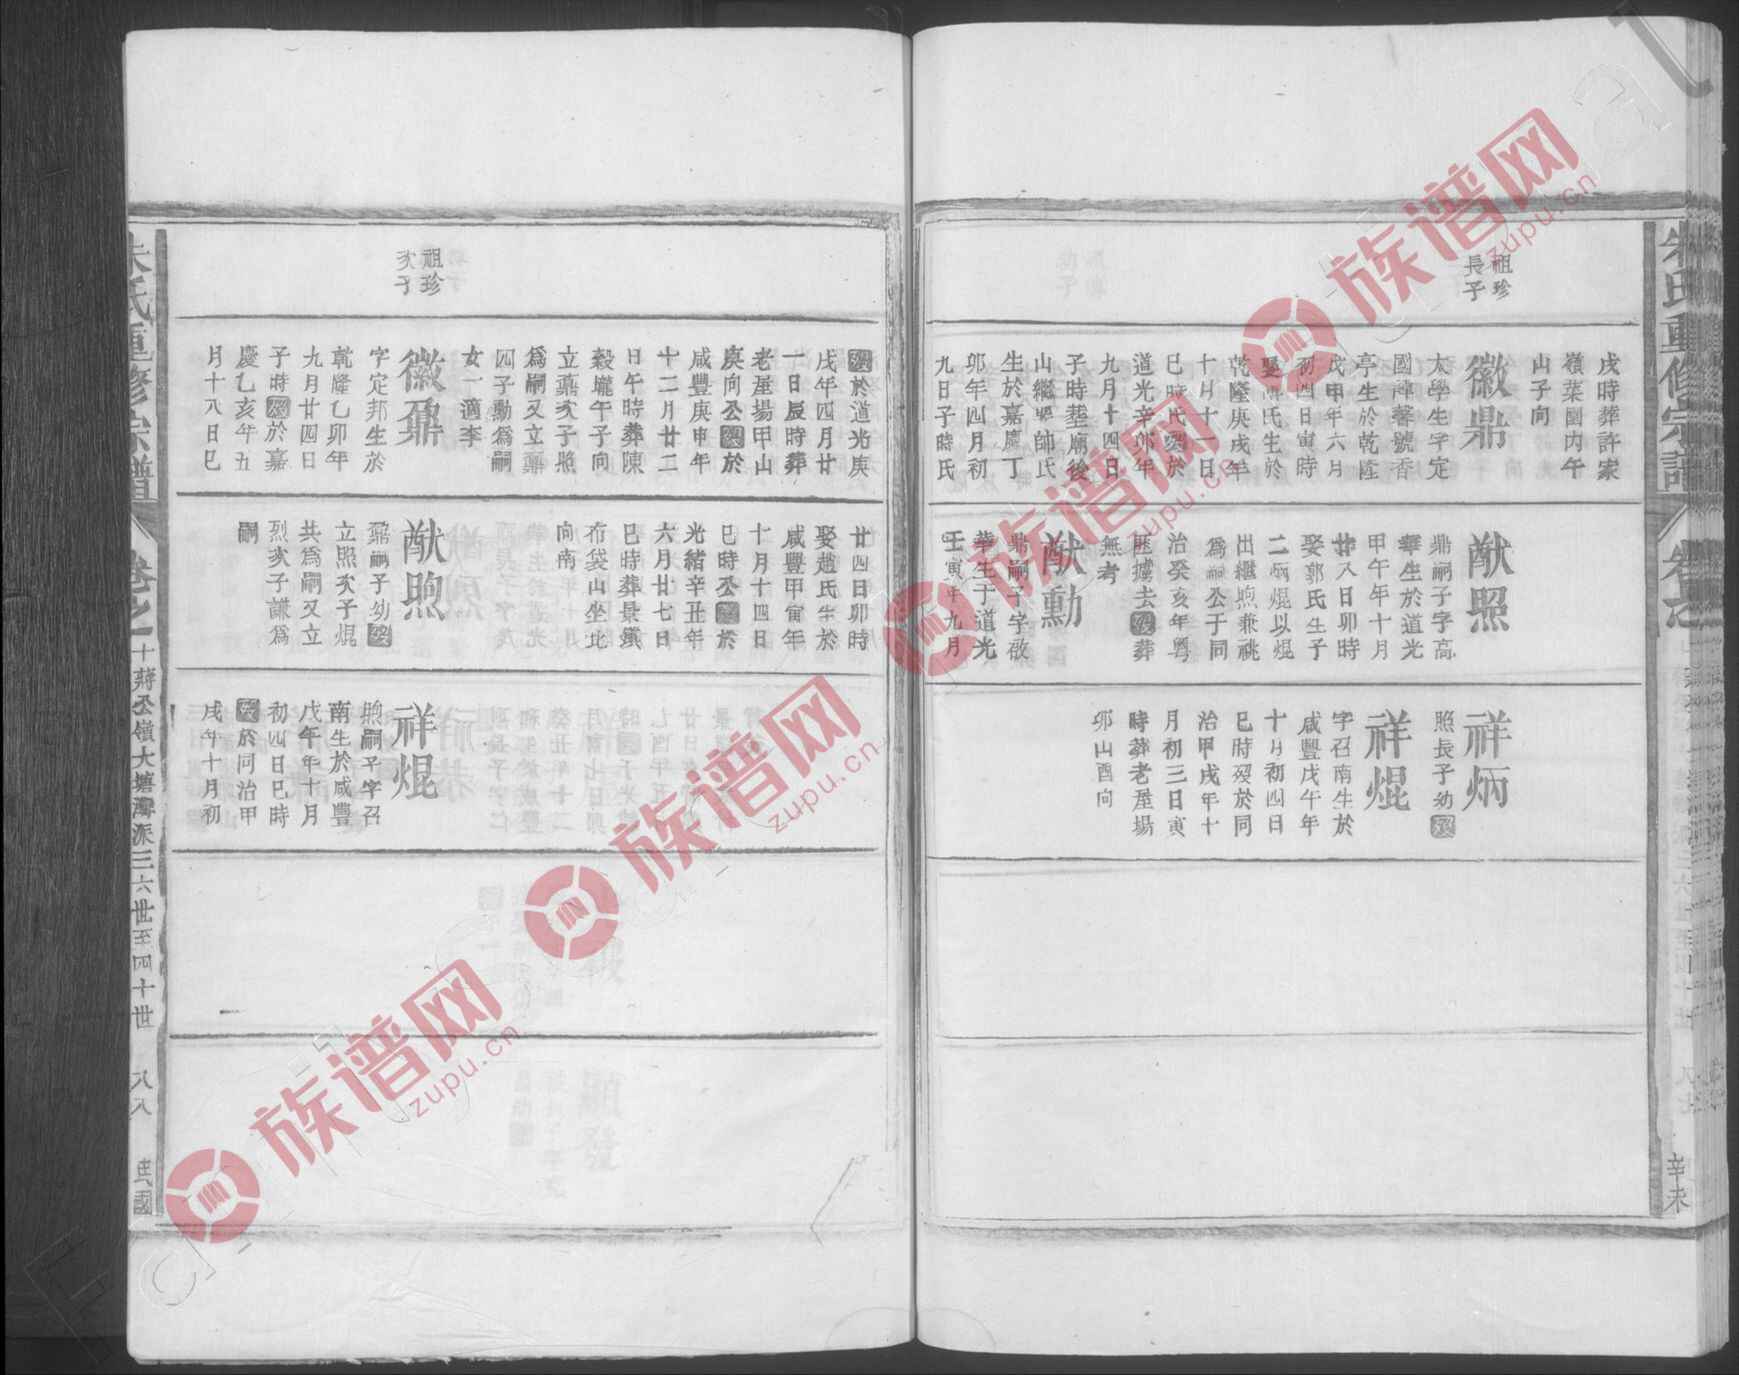 祖珍
長子
戌時葬許家
嶺葉園内午
山子向
徽鼎
太學生字定
國諱馨號香
亭生於乾隆
戊申年六月
初四日寅時
氏生於
乾隆庚戌年
十月十一日
巳時氏歿於
道光辛卯年
九月十四日
子時塟廟後
山繼
師氏
生於嘉慶丁
卯年四月初
九日子時氏
猷照
鼎嗣子字高
華生於道光
甲午年十月
廿八日卯時
娶郭氏生子
二炳焜以焜
出繼煦兼祧
爲嗣公于同
治癸亥年粤
匪擄去歿葬
無考
猷勳
鼎嗣子字敬
華生于道光
壬寅年九月
祥炳
照長子幼歿
祥焜
字召南生於
咸豐戊午年
十月初四日
巳時歿於同
治甲戌年十
月初三日寅
時葬老屋場
卯山酉向
辛未
祖珍
次子
歿於道光庚
戌年四月廿
一日辰時葬
老屋場甲山
庚向公歿於
咸豐庚申年
十二月廿二
日午時葬陳
穀壠午子向
立鼐次子照
爲嗣又立鼐
四子勳爲嗣
女一適李
徽鼐
字定邦生於
乾隆乙卯年
九月廿四日
子時歿於嘉
慶乙亥年五
月十八日巳
廿四日卯時
娶趙氏生於
咸豐甲寅年
十月十四日
巳時公歿於
光緒辛丑年
六月廿七日
巳時葬景
布袋山坐北
向南
猷煦
鼐嗣子幼歿
立照次子焜
共爲嗣又立
烈次子謙爲
嗣
祥焜
煦嗣子字召
南生於咸豐
戊午年十月
初四日巳時
歿於同治甲
戌年十月初
朱氏重修宗譜
卷之一
十蔣公嶺大塘灣派三六世至四十世
八八
民國
族谱网
zupu.cn
族谱网
zupu.cn
族谱网
zupu.cn
族谱网
zupu.cn